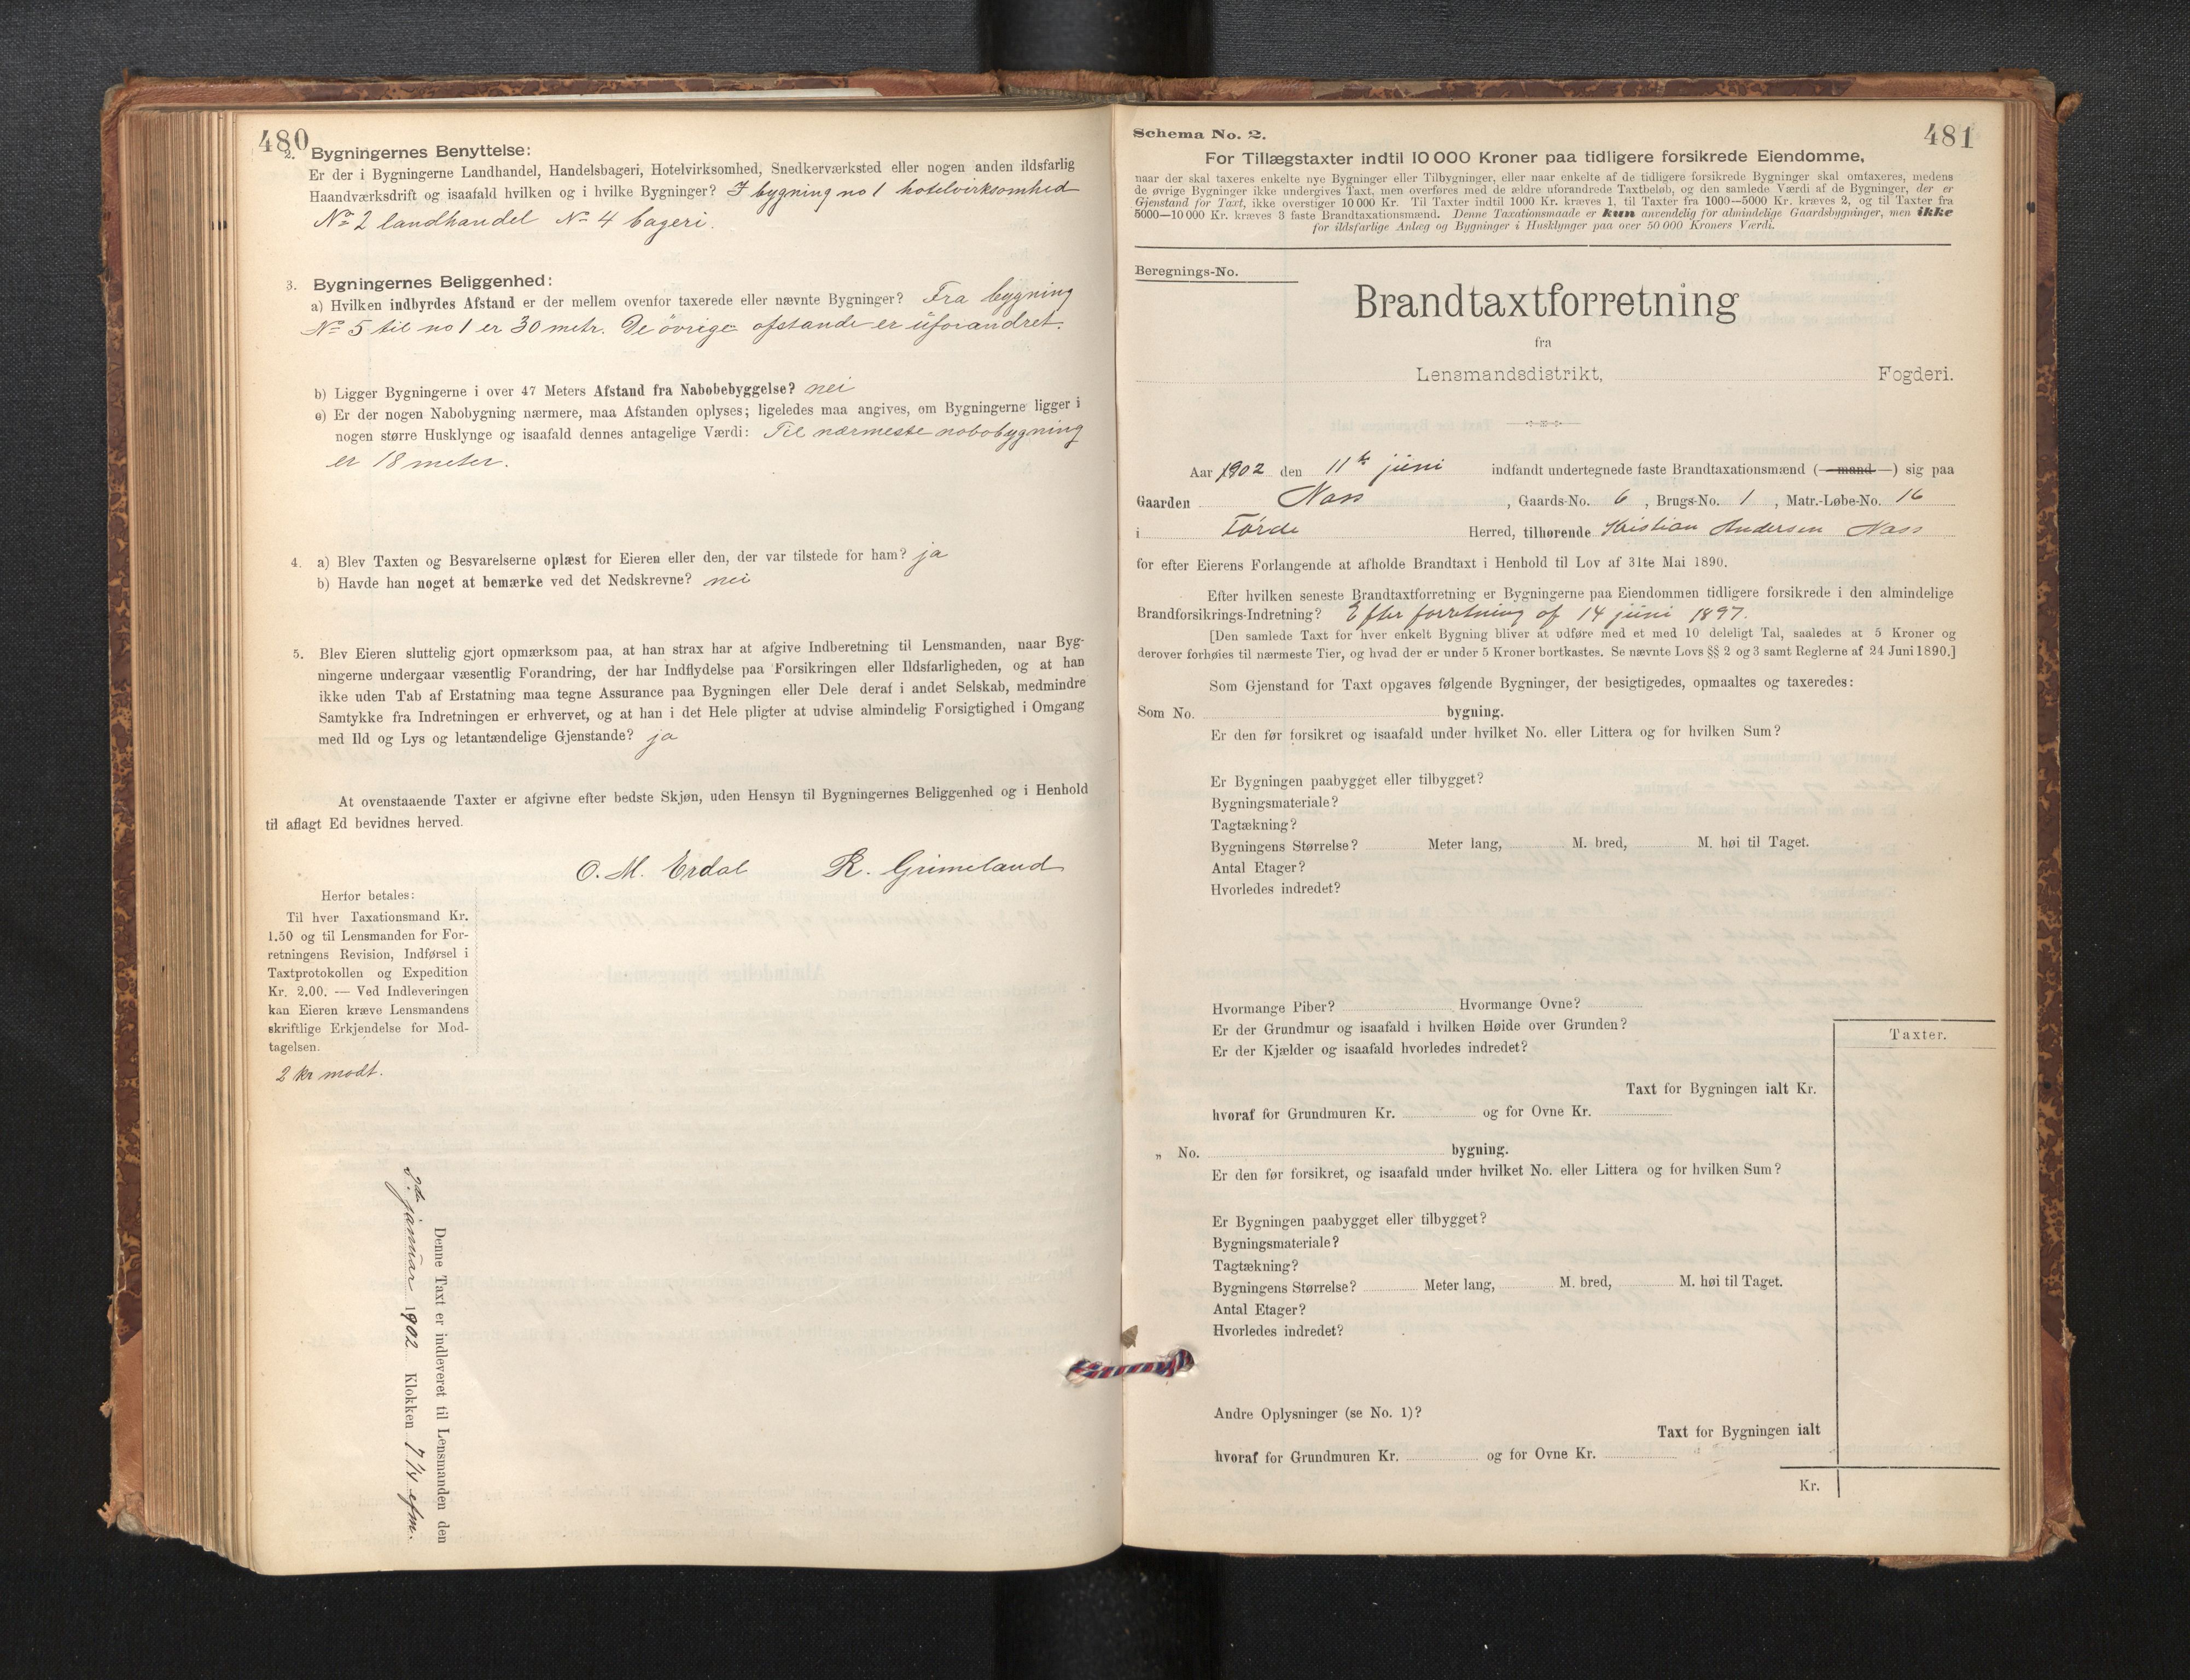 480
2. Bygningernes Benyttelse:
Er der i Bygningerne Landhandel, Handelsbageri, Hotelvirksomhed, Snedkerværksted eller nogen anden ildsfarlig
Haandværksdrift og isaafald hvilken og i hvilke Bygninger? I bygning no 1 hotelvirksomhed
No 2 landhandel No 4 bageri.
3. Bygningernes Beliggenhed:
a) Hvilken indbyrdes Afstand er der mellem ovenfor taxerede eller nævnte Bygninger? Fra bygning
No 5 til no 1 er 30 metr. De øvrige afstande er uforandret.
b) Ligger Bygningerne i over 47 Meters Afstand fra Nabobebyggelse? nei
c) Er der nogen Nabobygning nærmere, maa Afstanden oplyses; ligeledes maa angives, om Bygningerne ligger i
nogen større Husklynge og isaafald dennes antagelige Værdi: Til nærmeste nabobygning
er 18 meter.
4. a) Blev Taxten og Besvarelserne oplæst for Eieren eller den, der var tilstede for ham? ja
b) Havde han noget at bemærke ved det Nedskrevne? nei
5. Blev Eieren sluttelig gjort opmærksom paa, at han strax har at afgive Indberetning til Lensmanden, naar Byg-
ningerne undergaar væsentlig Forandring, der har Indflydelse paa Forsikringen eller Ildsfarligheden, og at han
ikke uden Tab af Erstatning maa tegne Assurance paa Bygningen eller Dele deraf i andet Selskab, medmindre
Samtykke fra Indretningen er erhvervet, og at han i det Hele pligter at udvise almindelig Forsigtighed i Omgang
med Ild og Lys og letantændelige Gjenstande? ja
At ovenstaaende Taxter er afgivne efter bedste Skjøn, uden Hensyn til Bygningernes Beliggenhed og i Henhold
til aflagt Ed bevidnes herved.
O. M. Erdal R. Grimeland
Herfor betales:
Til hver Taxationsmand Kr.
1.50 og til Lensmanden for For-
retningens Revision, Indførsel i
Taxtprotokollen og Expedition
Kr. 2.00. — Ved Indleveringen
kan Eieren kræve Lensmandens
skriftlige Erkjendelse for Mod-
tagelsen.
2 kr modt.
Denne Taxt er indleveret til Lensmanden den
januar 1902 Klokken 7 1/2 efm.
Schema No. 2.
481
For Tillægstaxter indtil 10 000 Kroner paa tidligere forsikrede Eiendomme,
naar der skal taxeres enkelte nye Bygninger eller Tilbygninger, eller naar enkelte af de tidligere forsikrede Bygninger skal omtaxeres, medens
de øvrige Bygninger ikke undergives Taxt, men overføres med de ældre uforandrede Taxtbeløb, og den samlede Værdi af de Bygninger, der er
Gjenstand for Taxt, ikke overstiger 10 000 Kr. Til Taxter indtil 1000 Kr. kræves 1, til Taxter fra 1000—5000 Kr. kræves 2, og til Taxter fra
5000—10 000 Kr. kræves 3 faste Brandtaxationsmænd. Denne Taxationsmaade er kun anvendelig for almindelige Gaardsbygninger, men ikke
for ildsfarlige Anlæg og Bygninger i Husklynger paa over 50 000 Kroners Værdi.
Beregnings-No.
Brandtaxtforretning
fra
Lensmandsdistrikt, Fogderi.
Aar 1902 den 11te juni indfandt undertegnede faste Brandtaxationsmænd (—mand—) sig paa
Gaarden Nass, Gaards-No. 6, Brugs-No. 1, Matr.-Løbe-No. 16
i Førde Herred, tilhørende Kristian Andersen Nass
for efter Eierens Forlangende at afholde Brandtaxt i Henhold til Lov af 31te Mai 1890.
Efter hvilken seneste Brandtaxtforretning er Bygningerne paa Eiendommen tidligere forsikrede i den almindelige
Brandforsikrings-Indretning? Efter forretning af 14 juni 1897.
[Den samlede Taxt for hver enkelt Bygning bliver at udføre med et med 10 deleligt Tal, saaledes at 5 Kroner og
derover forhøies til nærmeste Tier, og hvad der er under 5 Kroner bortkastes. Se nævnte Lovs §§ 2 og 3 samt Reglerne af 24 Juni 1890.]
Som Gjenstand for Taxt opgaves følgende Bygninger, der besigtigedes, opmaaltes og taxeredes:
Som No. bygning.
Er den før forsikret og isaafald under hvilket No. eller Littera og for hvilken Sum?
Er Bygningen paabygget eller tilbygget?
Bygningsmateriale?
Tagtækning?
Bygningens Størrelse? Meter lang, M. bred, M. høi til Taget.
Antal Etager?
Hvorledes indredet?
Hvormange Piber? Hvormange Ovne?
Er der Grundmur og isaafald i hvilken Høide over Grunden?
Er der Kjælder og isaafald hvorledes indredet?
Taxter.
Taxt for Bygningen ialt Kr.
hvoraf for Grundmuren Kr. og for Ovne Kr.
„ No. bygning.
Er den før forsikret, og isaafald under hvilket No. eller Littera og for hvilken Sum?
Er Bygningen paabygget eller tilbygget?
Bygningsmateriale?
Tagtækning?
Bygningens Størrelse? Meter lang, M. bred, M. høi til Taget.
Antal Etager?
Hvorledes indredet?
Andre Oplysninger (se No. 1)?
Taxt for Bygningen ialt
hvoraf for Grundmuren Kr. og for Ovne Kr.
Kr.